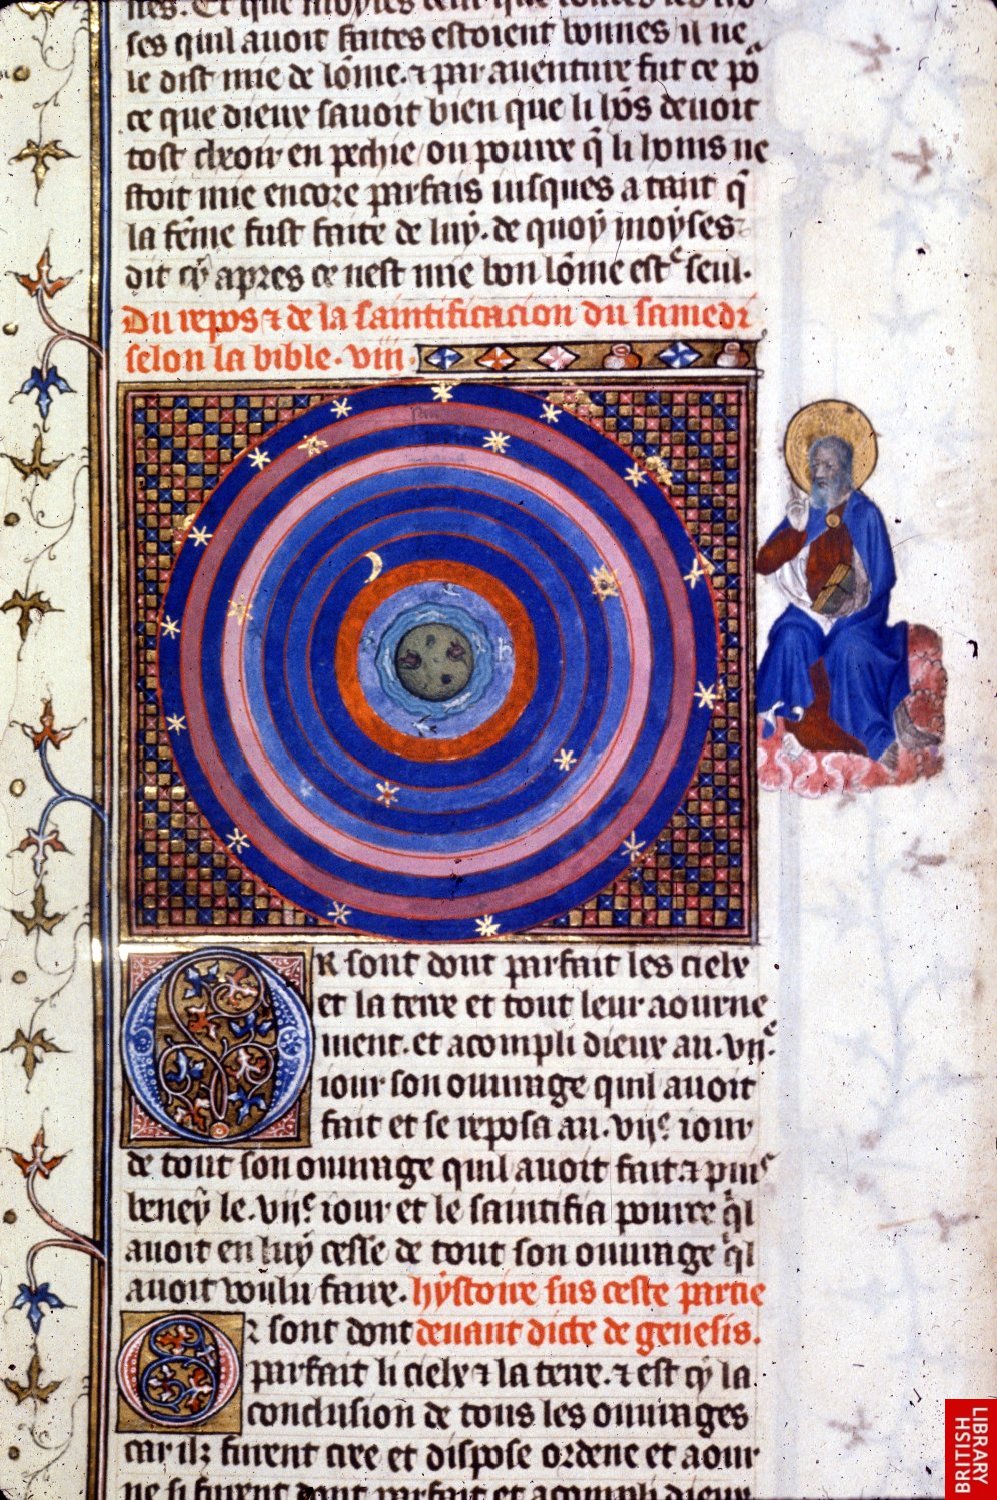 nes. Et que moyses
ses quil auoit faites estoient bonnes il ne
le dist mie de lõme. ⁊ par auenture fut ce po᷑
ce que dieux sauoit bien que li hõs deuoit
tost cheoir en pechie / ou pource q̃ li homs ne
stoit mie encore parfais iusques a tant q̃
la fẽme fust faite de luy. de quoy moyses
dit cy apres ce nest mie bon lõme estᵉ seul.
Du repos ⁊ de la saintificacion du samedi
selon la bible. viii.
OR sont dont parfait les cielx
et la terre et tout leur aourne
ment. et acompli dieux au .vijᵉ.
iour son ouurage quil auoit
fait et se reposa au .vijᵉ. iour
de tout son ouurage quil auoit fait. ⁊ puis
beney le .vijᵉ. iour et le saintifia pource q̃l
auoit en luy cesse de tout son ouurage q̃l
auoit voulu faire. hystoire sus ceste partie
Or sont dont deuant dicte de genesis.
parfait li cielx ⁊ la terre. ⁊ est cy la
conclusion de tous les ouurages
car ilz furent cree et dispose ordene et aour
ne si furent dont parfait et acompli dieux
BRITISH
LIBRARY